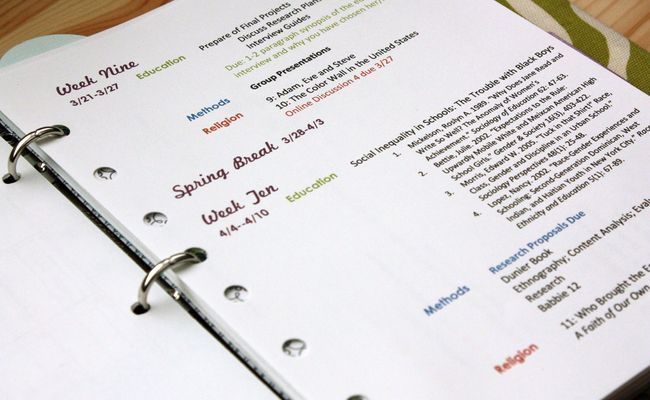 Week Nine
3/21-3/27
Education
Prepare of Final Projects
Discuss Research Plan
Interview Guides
Due: 1-2 paragraph synopsis of the
interview and why you have chosen her/
Group Presentations
Methods
9: Adam, Eve and Steve
10: The Color Wall in the United States
Religion
Online Discussion 4 due 3/27
Spring Break 3/28-4/3
Week Ten
4/4--4/10
Education
Social Inequality in Schools: The Trouble with Black Boys
1. Mickelson, Roslyn A. 1989. "Why Does Jane Read and
Write So Well? The Anomaly of Women's
Achievement." Sociology of Education 62: 47-63.
2. Bettie, Julie. 2002. "Expectations to the Rule:
Upwardly Mobile White and Mexican American High
School Girls." Gender & Society 16(3), 403-422.
3. Morris, Edward W. 2005. "Tuck in that Shirt!" Race,
Class, Gender and Discipline in an Urban School."
Sociology Perspectives 48(1): 25-48.
4. Lopez, Nancy. 2002. "Race-Gender Experiences and
Schooling: Second-Generation Dominican, West
Indian, and Haitian Youth in New York City." Race
Ethnicity and Education 5(1): 67-89.
Research Proposals Due
Methods
Dunier Book
Ethnography; Content Analysis; Evalu
Research
Babbie 12
Religion
11: Who Brought the E
A Faith of Our Own